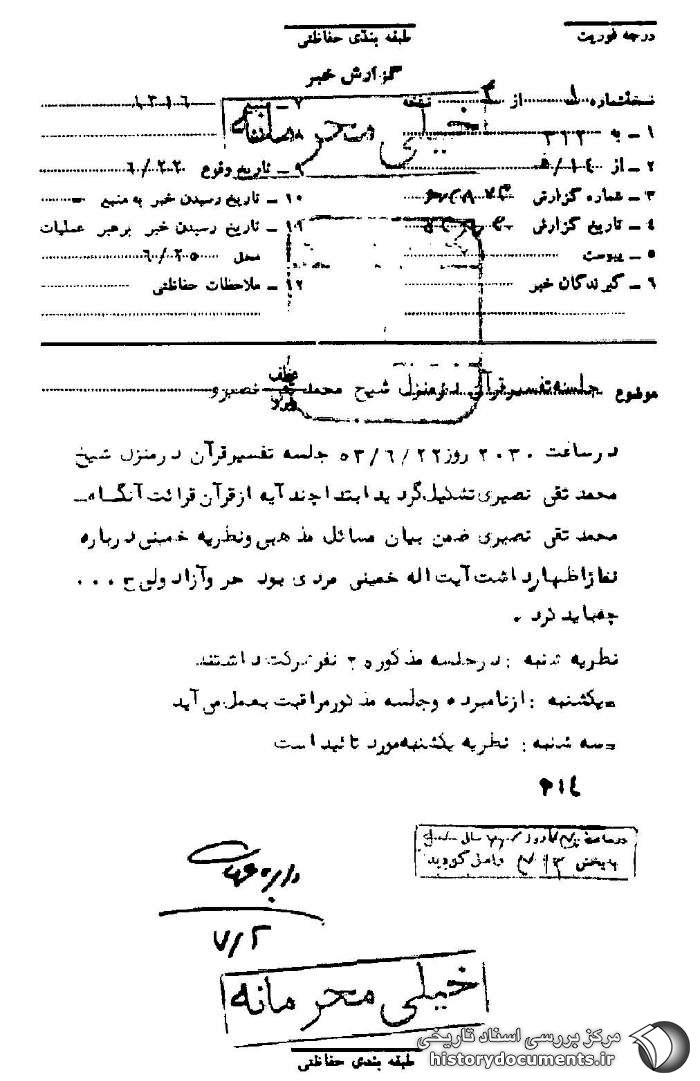 درجه فوریت
طبقه بندی حفاظتی
گزارش خبر
نسخه شماره ۱ از ۳ نسخه
۱ - به ۳۱۲
۲ - از
۳ - شماره گزارش
۴ - تاریخ گزارش
۵ - پیوست
۶ - گیرندگان خبر
۷ - منبع ۱۳۱۶
۹ - تاریخ وقوع ۶/۲۲
۱۰ - تاریخ رسیدن خبر به منبع -
۱۱ - تاریخ رسیدن خبر برهبر عملیات
محل ۶/۲۵
۱۲ - ملاحظات حفاظتی
خیلی محرمانه
موضوع جلسه تفسیرقرآن درمنزل شیخ محمد تقی نصیری
درساعت ۲۰۳۰ روز ۵۳/۶/۲۲ جلسه تفسیرقرآن درمنزل شیخ
محمد تقی نصیری تشکیل گردید ابتدا چند آیه ازقرآن قرائت آنگاه
محمد تقی نصیری ضمن بیان مسائل مذهبی ونظریه خمینی درباره
نماز اظهارداشت آیت اله خمینی مردی بود حر وآزاد ولی ح ...
چه باید کرد .
نظریه شنبه : درجلسه مذکور ۲۰ نفرشرکت داشتند
=یکشنبه : ازنامبرده وجلسه مذکورمراقبت بعمل می آید
=سه شنبه : نظریه یکشنبه مورد تائید است
۳۱۴
۷/۲
خیلی محرمانه
طبقه بندی حفاظتی
مرکز بررسی اسناد تاریخی
historydocuments.ir